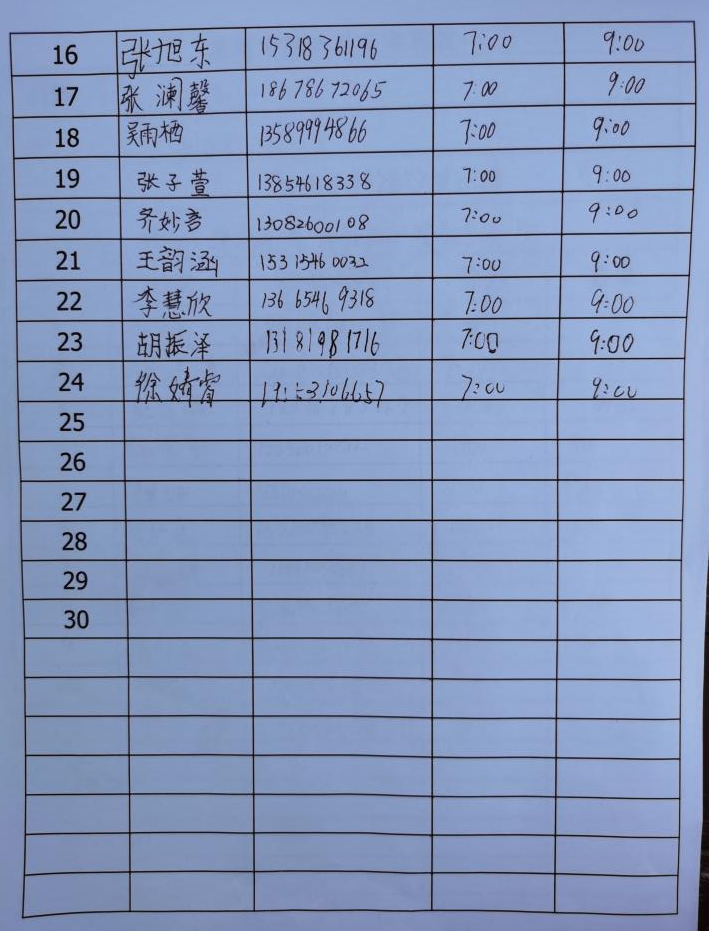 16 张旭东 15318361196 7:00 9:00
17 张澜馨 18678672065 7:00 9:00
18 吴雨栖 13589994866 7:00 9:00
19 张子萱 13854618338 7:00 9:00
20 齐妙言 13082600108 7:00 9:00
21 王韵涵 15315460032 7:00 9:00
22 李慧欣 13665469318 7:00 9:00
23 胡振泽 13181981716 7:00 9:00
24 徐婧睿 7:00 9:00
25
26
27
28
29
30